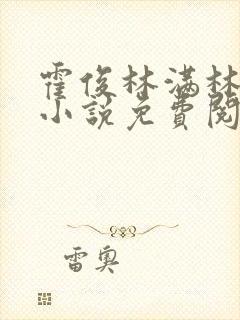 霍俊林满林
小说免費閱
雷奥